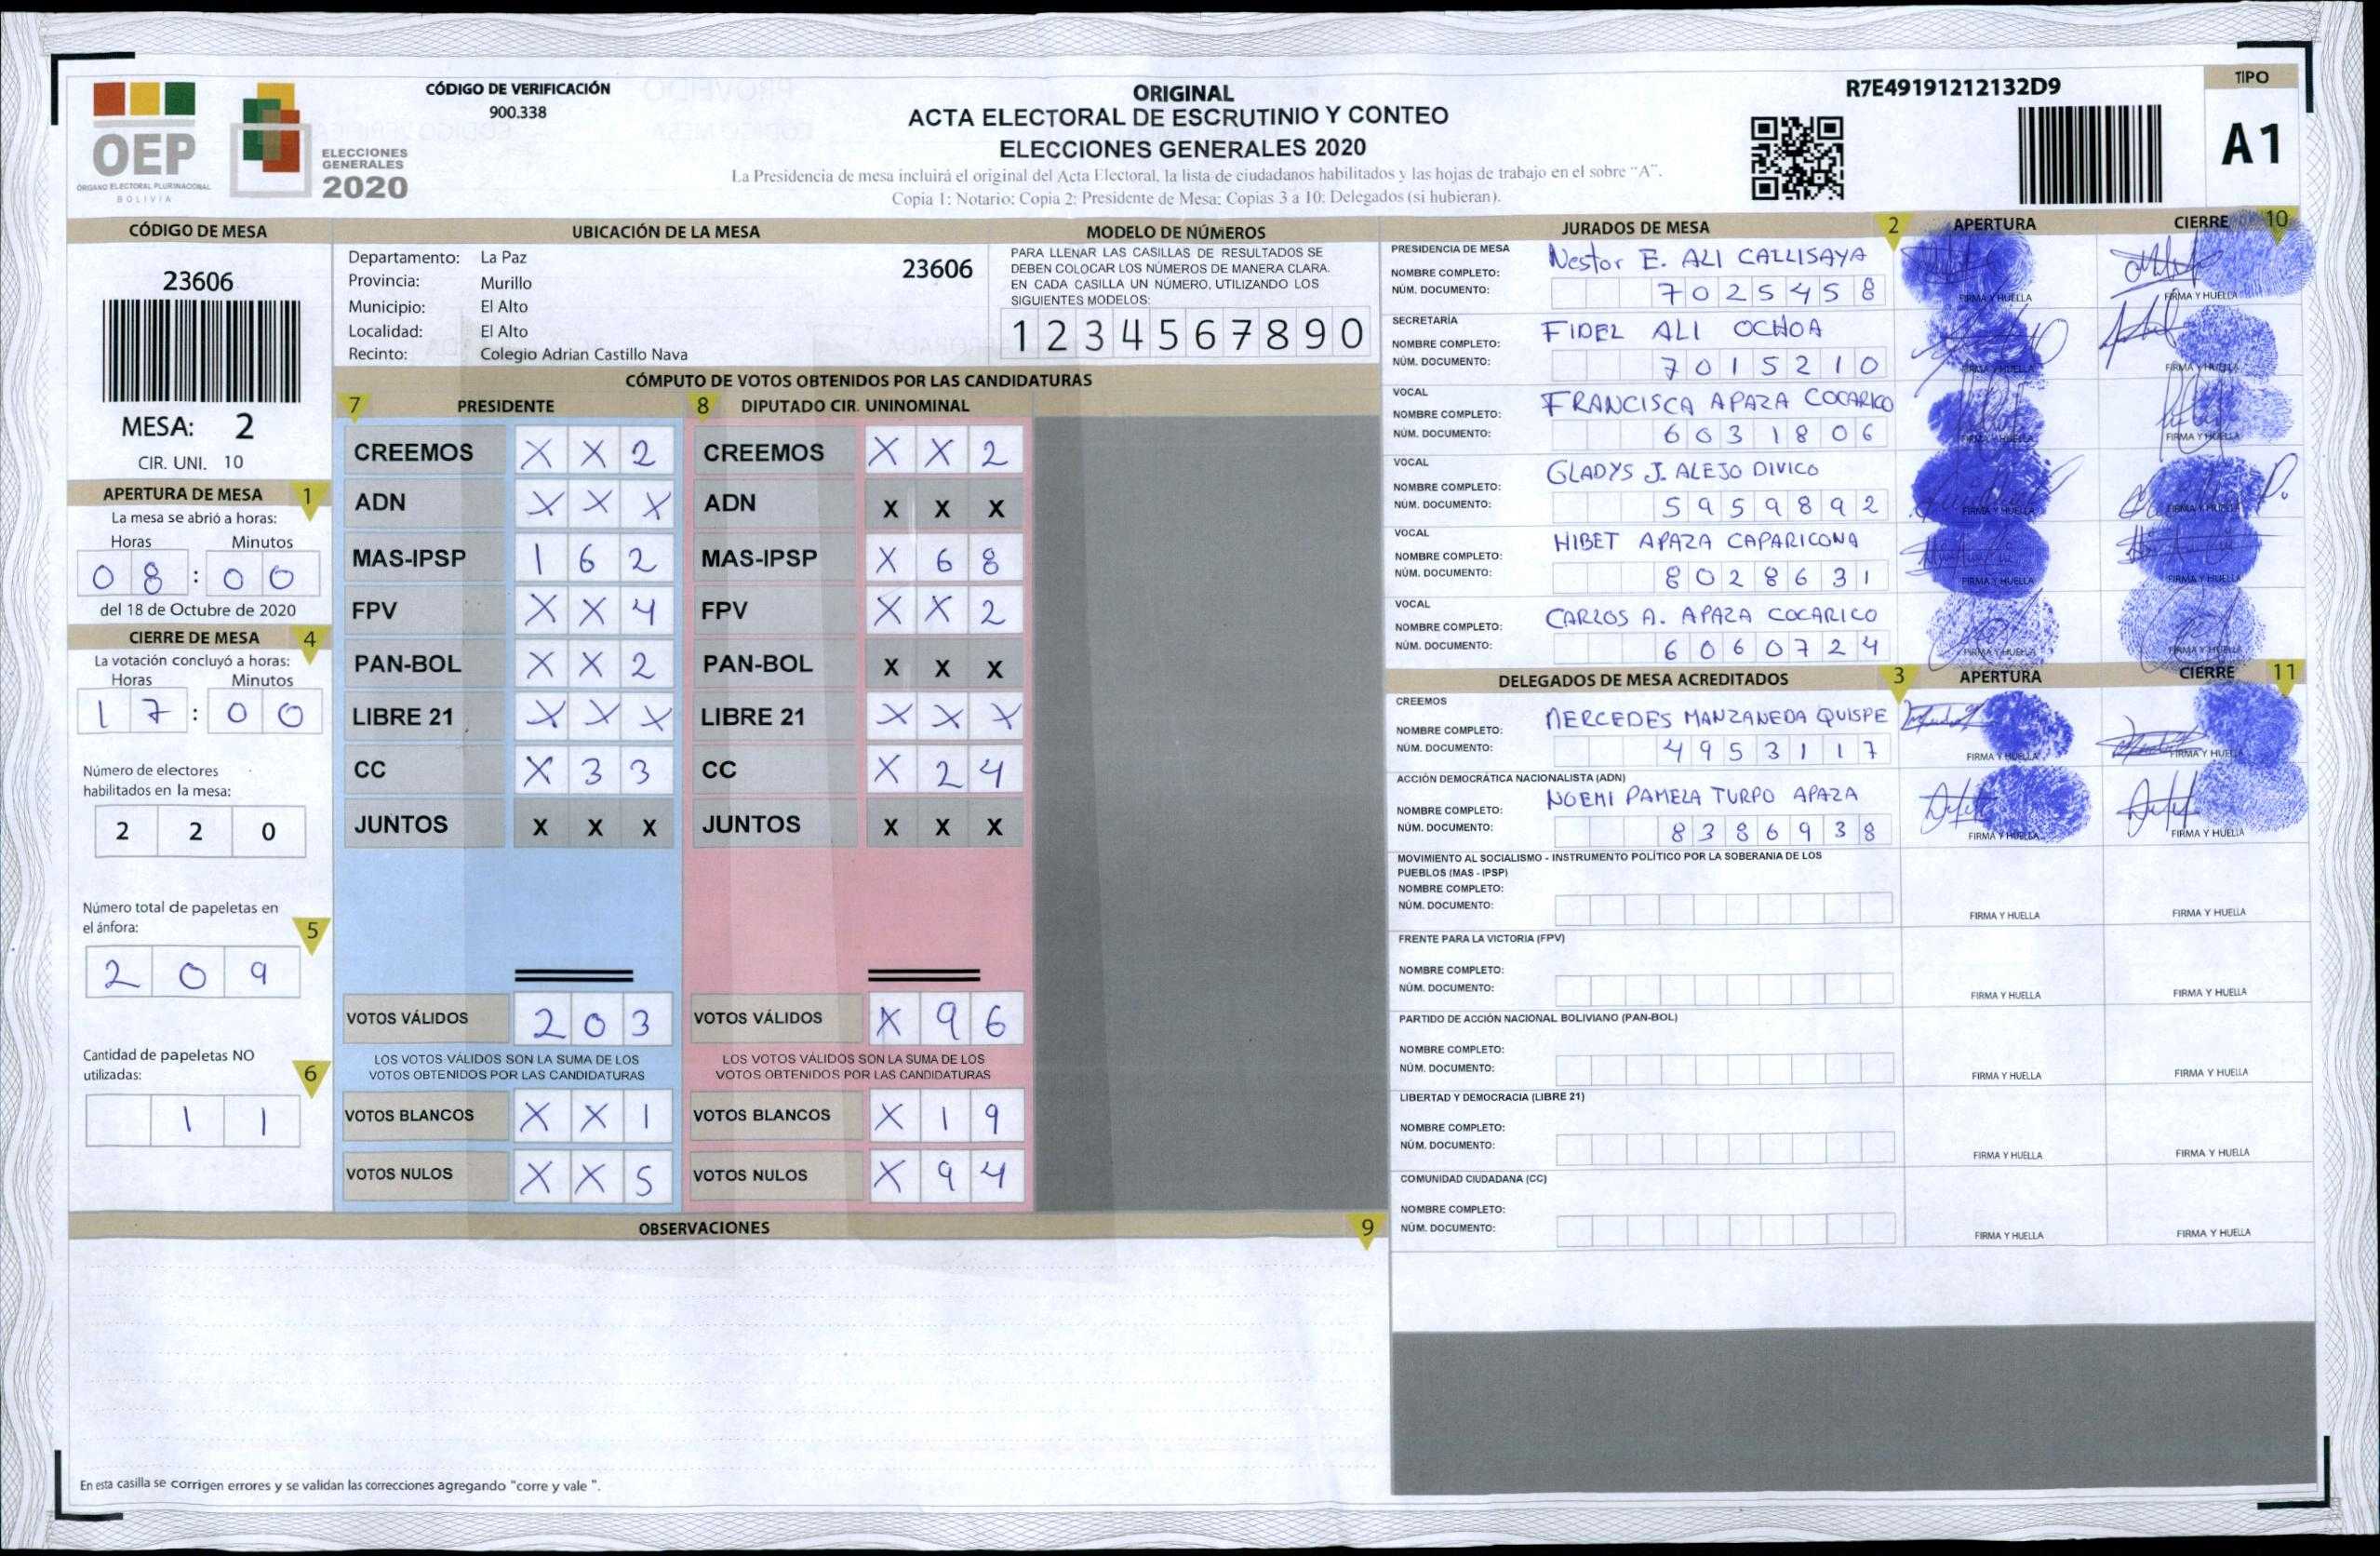 OEP
ÓRGANO ELECTORAL PLURINACIONAL
BOLIVIA
ELECCIONES
GENERALES
2020
CÓDIGO DE VERIFICACIÓN
900.338
ORIGINAL
ACTA ELECTORAL DE ESCRUTINIO Y CONTEO
ELECCIONES GENERALES 2020
La Presidencia de mesa incluirá el original del Acta Electoral, la lista de ciudadanos habilitados y las hojas de trabajo en el sobre "A".
Copia 1: Notario; Copia 2: Presidente de Mesa; Copias 3 a 10: Delegados (si hubieran).
R7E49191212132D9
TIPO
A1
CÓDIGO DE MESA
23606
MESA: 2
CIR. UNI. 10
APERTURA DE MESA 1
La mesa se abrió a horas:
Horas Minutos
08 : 00
del 18 de Octubre de 2020
CIERRE DE MESA 4
La votación concluyó a horas:
Horas Minutos
17 : 00
Número de electores
habilitados en la mesa:
2 2 0
Número total de papeletas en
el ánfora: 5
2 0 9
Cantidad de papeletas NO
utilizadas: 6
1 1
UBICACIÓN DE LA MESA
Departamento: La Paz
23606
Provincia: Murillo
Municipio: El Alto
Localidad: El Alto
Recinto: Colegio Adrian Castillo Nava
MODELO DE NÚMEROS
PARA LLENAR LAS CASILLAS DE RESULTADOS SE
DEBEN COLOCAR LOS NÚMEROS DE MANERA CLARA.
EN CADA CASILLA UN NÚMERO, UTILIZANDO LOS
SIGUIENTES MODELOS:
1 2 3 4 5 6 7 8 9 0
CÓMPUTO DE VOTOS OBTENIDOS POR LAS CANDIDATURAS
7 PRESIDENTE 8 DIPUTADO CIR. UNINOMINAL
CREEMOS X X 2 CREEMOS X X 2
ADN X X X ADN X X X
MAS-IPSP 1 6 2 MAS-IPSP X 6 8
FPV X X 4 FPV X X 2
PAN-BOL X X 2 PAN-BOL X X X
LIBRE 21 X X X LIBRE 21 X X X
CC X 3 3 CC X 2 4
JUNTOS X X X JUNTOS X X X
VOTOS VÁLIDOS 2 0 3 VOTOS VÁLIDOS X 9 6
LOS VOTOS VÁLIDOS SON LA SUMA DE LOS LOS VOTOS VÁLIDOS SON LA SUMA DE LOS
VOTOS OBTENIDOS POR LAS CANDIDATURAS VOTOS OBTENIDOS POR LAS CANDIDATURAS
VOTOS BLANCOS X X 1 VOTOS BLANCOS X 1 9
VOTOS NULOS X X 5 VOTOS NULOS X 9 4
OBSERVACIONES 9
En esta casilla se corrigen errores y se validan las correcciones agregando "corre y vale ".
JURADOS DE MESA 2 APERTURA CIERRE 10
PRESIDENCIA DE MESA
NOMBRE COMPLETO: Nestor E. ALI CALLISAYA
NÚM. DOCUMENTO: 7025458
FIRMA Y HUELLA FIRMA Y HUELLA
SECRETARÍA
NOMBRE COMPLETO: FIDEL ALI OCHOA
NÚM. DOCUMENTO: 7015210
FIRMA Y HUELLA FIRMA Y HUELLA
VOCAL
NOMBRE COMPLETO: FRANCISCA APAZA COCARICO
NÚM. DOCUMENTO: 6031806
FIRMA Y HUELLA FIRMA Y HUELLA
VOCAL
NOMBRE COMPLETO: GLADYS J. ALEJO DIVICO
NÚM. DOCUMENTO: 5959892
FIRMA Y HUELLA FIRMA Y HUELLA
VOCAL
NOMBRE COMPLETO: HIBET APAZA CAPARICONA
NÚM. DOCUMENTO: 8028631
FIRMA Y HUELLA FIRMA Y HUELLA
VOCAL
NOMBRE COMPLETO: CARLOS A. APAZA COCARICO
NÚM. DOCUMENTO: 6060724
FIRMA Y HUELLA FIRMA Y HUELLA
DELEGADOS DE MESA ACREDITADOS 3 APERTURA CIERRE 11
CREEMOS
NOMBRE COMPLETO: MERCEDES MANZANEDA QUISPE
NÚM. DOCUMENTO: 4953117
FIRMA Y HUELLA FIRMA Y HUELLA
ACCIÓN DEMOCRÁTICA NACIONALISTA (ADN)
NOMBRE COMPLETO: NOEMI PAMELA TURPO APAZA
NÚM. DOCUMENTO: 8386938
FIRMA Y HUELLA FIRMA Y HUELLA
MOVIMIENTO AL SOCIALISMO - INSTRUMENTO POLÍTICO POR LA SOBERANIA DE LOS
PUEBLOS (MAS - IPSP)
NOMBRE COMPLETO:
NÚM. DOCUMENTO:
FIRMA Y HUELLA FIRMA Y HUELLA
FRENTE PARA LA VICTORIA (FPV)
NOMBRE COMPLETO:
NÚM. DOCUMENTO:
FIRMA Y HUELLA FIRMA Y HUELLA
PARTIDO DE ACCIÓN NACIONAL BOLIVIANO (PAN-BOL)
NOMBRE COMPLETO:
NÚM. DOCUMENTO:
FIRMA Y HUELLA FIRMA Y HUELLA
LIBERTAD Y DEMOCRACIA (LIBRE 21)
NOMBRE COMPLETO:
NÚM. DOCUMENTO:
FIRMA Y HUELLA FIRMA Y HUELLA
COMUNIDAD CIUDADANA (CC)
NOMBRE COMPLETO:
NÚM. DOCUMENTO:
FIRMA Y HUELLA FIRMA Y HUELLA